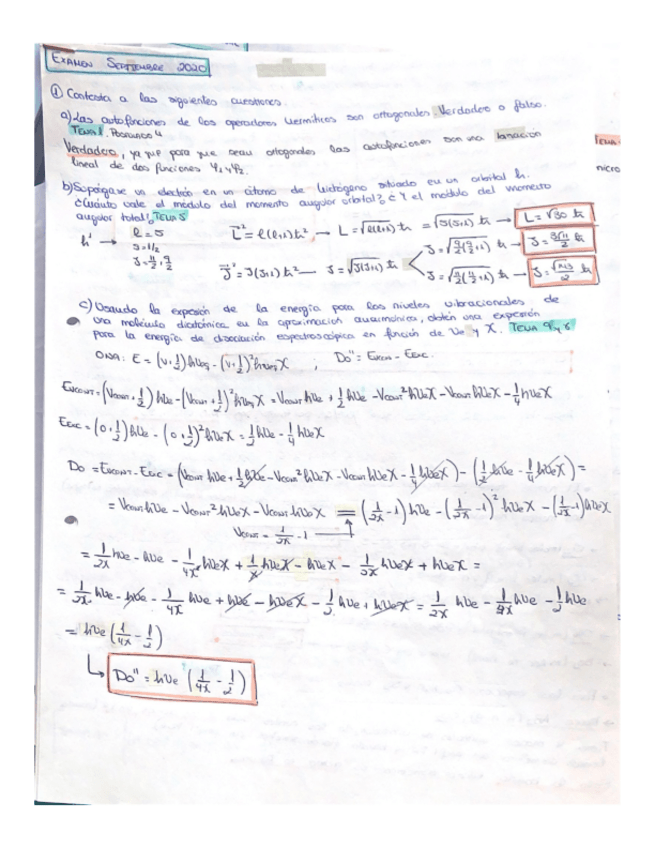 EXAMEN SEPTIEMBRE 2020
① Contesta a las siguientes cuestiones.
a) Las autofunciones de los operadores hermíticos son ortogonales. Verdadero o falso.
TEMA 1. POSTULADO 4
Verdadero, ya que para que sean ortogonales las autofunciones son una
lineal de dos funciones Ψ₁, Ψ₂.
b) Supóngase un electrón en un átomo de hidrógeno situado en un orbital h.
¿Cuánto vale el módulo del momento angular orbital? ¿Y el módulo del momento
angular total? TEMA 5
h¹ → l = 5
L² = l(l+1)ħ² → L = √l(l+1) ħ = √5(5+1) ħ → L = √30 ħ
s = 1/2
J = 11/2, 9/2
J² = J(J+1)ħ² → J = √J(J+1) ħ
J = √9/2(9/2+1) ħ → J = 3√11/2 ħ
J = √11/2(11/2+1) ħ → J = √143/2 ħ
c) Usando la expresión de la energía para los niveles vibracionales de
una molécula diatómica en la aproximación anarmónica, obtén una expresión
para la energía de disociación espectroscópica en función de νe y X.
ONA: E = (v+1/2)hνe - (v+1/2)²hνeX ; Do'' = Encont - Eexc
Encont = (Vcont+1/2)hνe - (Vcont+1/2)²hνeX = Vcont hνe + 1/2 hνe - Vcont² hνeX - Vcont hνeX - 1/4 hνeX
Eexc = (0+1/2)hνe - (0+1/2)²hνeX = 1/2 hνe - 1/4 hνeX
Do = Encont - Eexc = (Vcont hνe + 1/2 hνe - Vcont² hνeX - Vcont hνeX - 1/4 hνeX) - (1/2 hνe - 1/4 hνeX) =
= Vcont hνe - Vcont² hνeX - Vcont hνeX = (1/2X - 1)hνe - (1/2X - 1)² hνeX - (1/2X - 1)hνeX
Vcont = 1/2X - 1
= 1/2X hνe - hνe - 1/4X² hνeX + 1/X hνeX - hνeX - 1/2X hνeX + hνeX =
= 1/2X hνe - hνe - 1/4X hνe + hνe - hνeX - 1/2 hνe + hνeX = 1/2X hνe - 1/4X hνe - 1/2 hνe
= hνe (1/4X - 1/2)
Do'' = hνe (1/4X - 1/2)
TEMA
micro